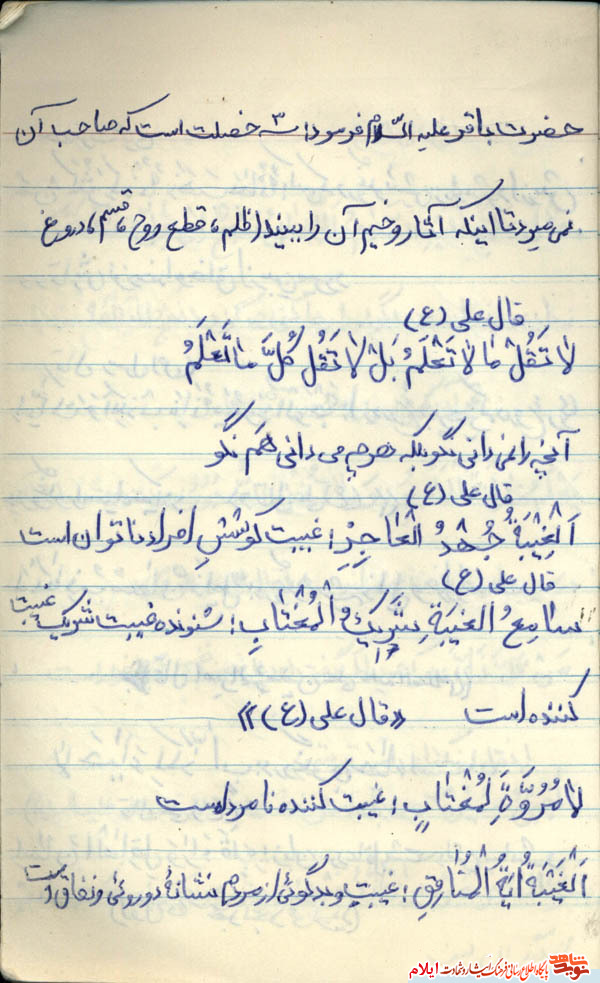 حضرت باقر علیه السّلام فرمود: سه خصلت است که صاحب آن
نمی میرد تا اینکه آثار وخیم آن را ببیند (ظلم، قطع روح، قسم، دروغ
قال علی (ع)
لا تَقُلْ ما لا تَعْلَمُ بَلْ لا تَقُل كُلَّ ما تَعْلَمُ
آنچه را نمی دانی نگو بلکه هر چه می دانی هَم نگو
قال علی (ع)
اَلْغیْبَةُ جُهْدُ الْعاجِزِ: غیبت کوششِ افراد ناتوان است
قال علی (ع)
سامِعُ الغیبَةِ شَریکُ الْمُغْتابِ: شنونده غیبت شریک غیبت
۱۶
کننده است «قال علی (ع)»
لا مُرُوَّةَ لِمُغْتابٍ: غیبت کننده نامرد است
اَلْغیْبَةُ ایَةُ الْمُنافِقِ: غیبت و بدگوئی از مردم نشانهٔ دوروئی و نفاق است
نوید شاهد پایگاه اطلاع رسانی فرهنگ ایثار و شهادت ایلام